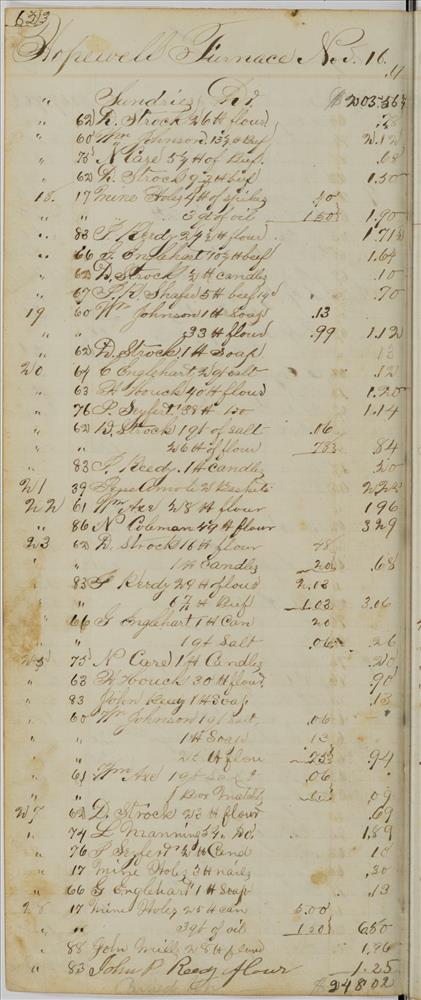 633
Hopewell Furnace Nov. 16.
" Sundries Dr. $203.56½
" 62 D. Strock 26 # flour .78
" 60 Wm Johnson 13¼ # Beef 2.12
" 75 N Care 5½ # of Beef .68
" 62 D. Strock # beef 1.50
18. 17 Mine Holes 4 # of spikes .40
" " 3 qt of oil 1.50 1.90
" 83 F. Reedy 24½ # flour 1.71½
" 66 G Englehart 10¼ # beef 1.64
" 62 D. Strock ½ # candles .10
" 67 Shafer 5 # beef 14 .70
19 60 Wm Johnson 1 # Soap .13
" " 33 # flour .99 1.12
" 62 D. Strock 1 # Soap 13
20 64 C Englehart 2 qt salt .12
" 63 H Houck 40 # flour 1.20
" 76 S. Seyfert 38 # Do 1.14
" 62 D. Strock 1 qt of salt .06
" " 26 # of flour .78 84
" 83 F. Reedy 1 # candles .20
21 39 2 Baskets
22 61 Wm Axe 28 # flour 196
" 86 N Coleman 47 # flour 329
23 62 D. Strock 16 # flour 48
" " 1 # candles .20 .68
" 83 F Reedy 29 # flour 2.03
" " 6½ # Beef 1.03 3.06
" 66 G Englehart 1 # Can 20
1 qt Salt .06 .26
75 N Care 1 # Candles .20
" 63 H Houck 30 # flour 90
" 83 John Reedy 1 # Soap .13
" 60 Wm Johnson 1 qt salt .06
" 1 # Soap 13
" # flou 94
" 61 Wm Axe 1 qt Salt .06
" 1 Box Matches 09
27 62 D. Strock 23 # flour .69
" 74 L Manning Do. 1.89
" 76 S Seyfert ½ # Cand 10
" 17 Mine Holes 3 # nails .30
" 66 G Englehart 1 # Soap .13
28 17 Mine Holes 25 # can 5.00
" " 3 qt of oil 1.50 6.50
" 88 John Mills 28 # flour 1.96
" 83 John P Reedy flour 1.25
$248.02